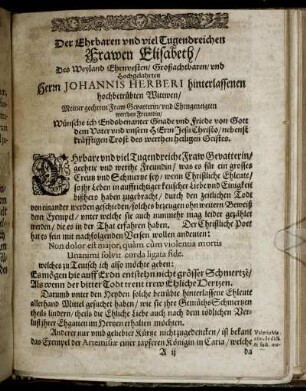 Der Ehrbaren vnd viel Tugendreichen
Frawen Elisabeth/
Des Weyland Ehrnvesten/ Großachtbaren/ vnd
Hochgelahrten
Herrn JOHANNIS HERBERI hinterlassenen
hochbetrübten Witwen/
Meiner geehrten Fraw Gevatterin/ vnd Ehrngeneigten
werthen Freundin/
Wünsche ich Endsbenanter Gnade vnd Friede von Gott
dem Vater vnd vnsern HErrn Jesu Christo/ nebenst
kräfftigen Trost des werthen heiligen Geistes.
Ehrbare vnd viel Tugendreiche Fraw Gevatterin/
geehrte vnd werthe Freundin/ was es für ein grosses
Creutz vnd Schmertz sey/ wenn Christliche Ehleute/
so ihr Leben in auffrichtiger keuscher Liebe vnd Einigkeit
bißhero haben zugebracht/ durch den zeitlichen Todt
von einander werden geschieden/ solches bezeugen ohn weitern Beweiß
dero Exempel/ vnter welche sie auch nunmehr mag leider gezählet
werden/ die es in der That erfahren haben. Der Christliche Poet
hat es fein mit nachfolgenden Versen wollen andeuten:
Non dolor est major, quàm cùm violentia mortis
Unanimi solvit corda ligata fide.
welches zu Teutsch ich also möchte geben:
Es mögen hie auff Erdn entstehn nicht grösser Schmertzn/
Als wenn der bitter Todt trent trew Ehliche Hertzen.
Darumb vnter den Heyden solche betrübte hinterlassene Ehleute
allerhand Mittel gesuchet haben/ wie sie ihre Gemüths Schmertzen
theils lindern/ theils die Ehliche Liebe auch nach dem tödlichen Ver-
lust ihrer Ehgatten im Hertzen erhalten möchten.
Anderer nur vmb geliebter Kürtze nicht zugedencken/ ist bekant
das Exempel der Artemisiæ einer tapfferen Königin in Caria/ welche
A ij
da